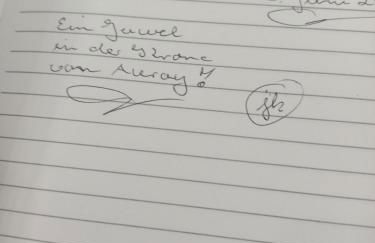 Juni
Ein Juwel
in der Krone
von Auray!
jk